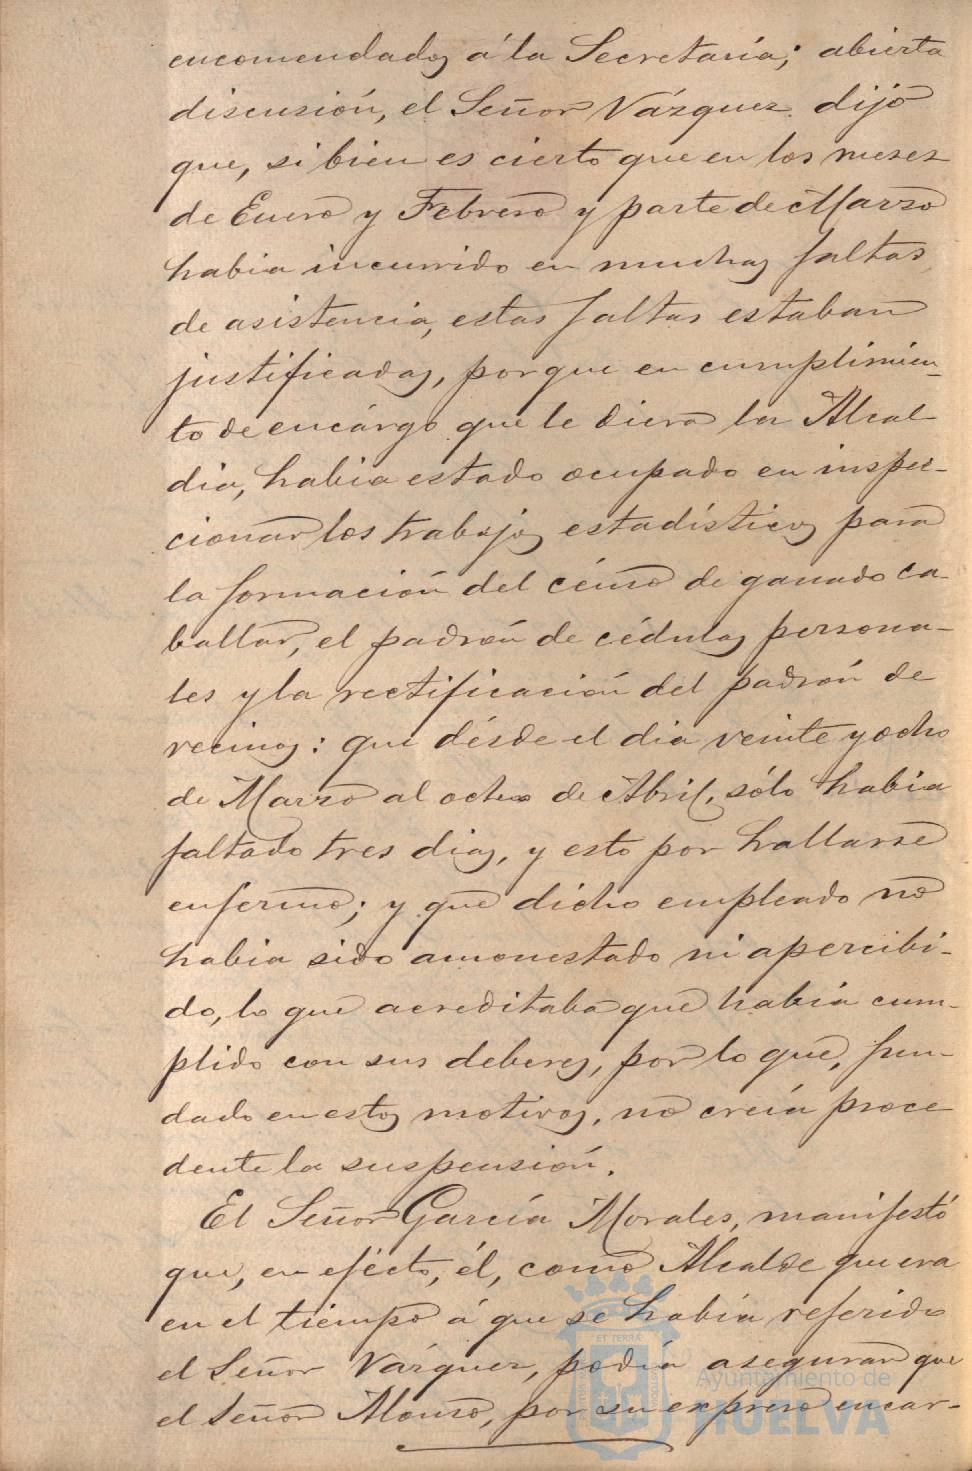 encomendados á la Secretaría; abierta
discusión, el Señor Vázquez dijo
que, si bien es cierto que en los meses
de Enero y Febrero y parte de Marzo
habia incurrido en muchas faltas
de asistencia, estas faltas estaban
justificadas, porque en cumplimien-
to de encárgo que le diera la Alcal
dia, habia estado ocupado en inspec-
cionar los trabajos estadísticos para
la formación del cénso de ganado ca-
ballar, el padrón de cédulas persona-
les y la rectificación del padrón de
vecinos: que désde el dia veinte y ocho
de Marzo al ocho de Abril, sólo habia
faltado tres dias, y esto por hallarse
enfermo; y que dicho empleado no
habia sido amonestado ni apercibi-
do, lo que acreditaba que había cum-
plido con sus deberes, por lo que, fun-
dado en estos motivos, no creía proce
dente la suspensión.
El Señor García Morales, manifestó
que, en efécto, él, como Alcalde que era
en el tiempo á que se había referido
el Señor Vázquez, podía asegurar que
el Señor Alonso, por su expreso encar-
ET TERRÆ
Ayuntamiento de
HUELVA